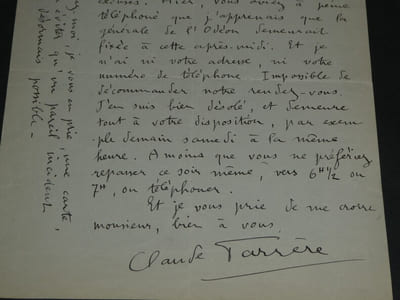 Hier, vous aviez à peine
téléphoné que j'apprenais que la
générale de l'Odéon demeurait
fixée à cette après-midi. Et je
n'ai ni votre adresse, ni votre
numéro de téléphone. Impossible de
décommander notre rendez-vous.
J'en suis bien désolé, et demeure
tout à votre disposition, par exem
ple demain samedi à la même
heure. A moins que vous ne préfériez
repasser ce soir même, vers 6H 1/2 ou
7H, ou téléphoner.
Et je vous prie de me croire
monsieur, bien à vous
Claude Farrère
moi, je vous en prie, une carte,
éviter qu'un pareil incident
désormais possible.